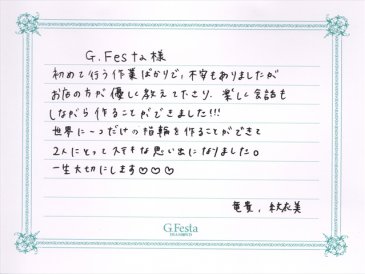 G.Festa様
初めて行う作業ばかりで、不安もありましたが
お店の方が優しく教えて下さり、楽しく会話も
しながら作ることができました!!!
世界に一つだけの指輪を作ることができて
2人にとってステキな思い出になりました。
一生大切にします♡♡♡
竜貴、
G.Festa